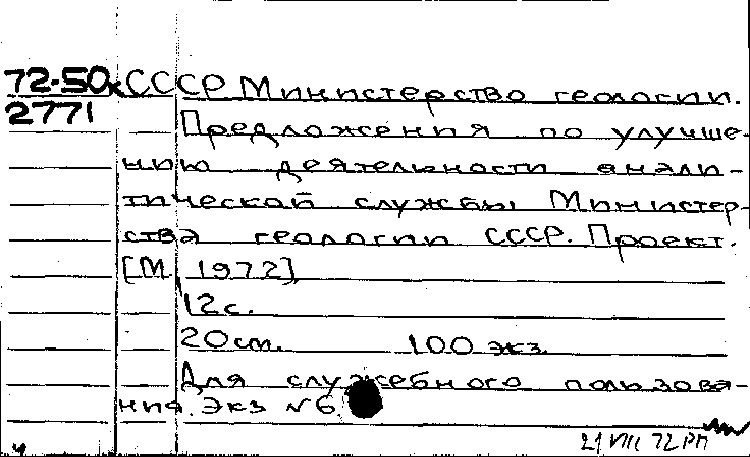 72-50к СССР Министерство геологии.
2771
Предложения по улучше-
нию деятельности анали-
тической службы Министер-
ства геологии СССР. Проект.
[М 1972]
12с.
20см. 100 экз.
Для служебного пользова-
ния. Экз №6.
21 VIII 72 РП
ч